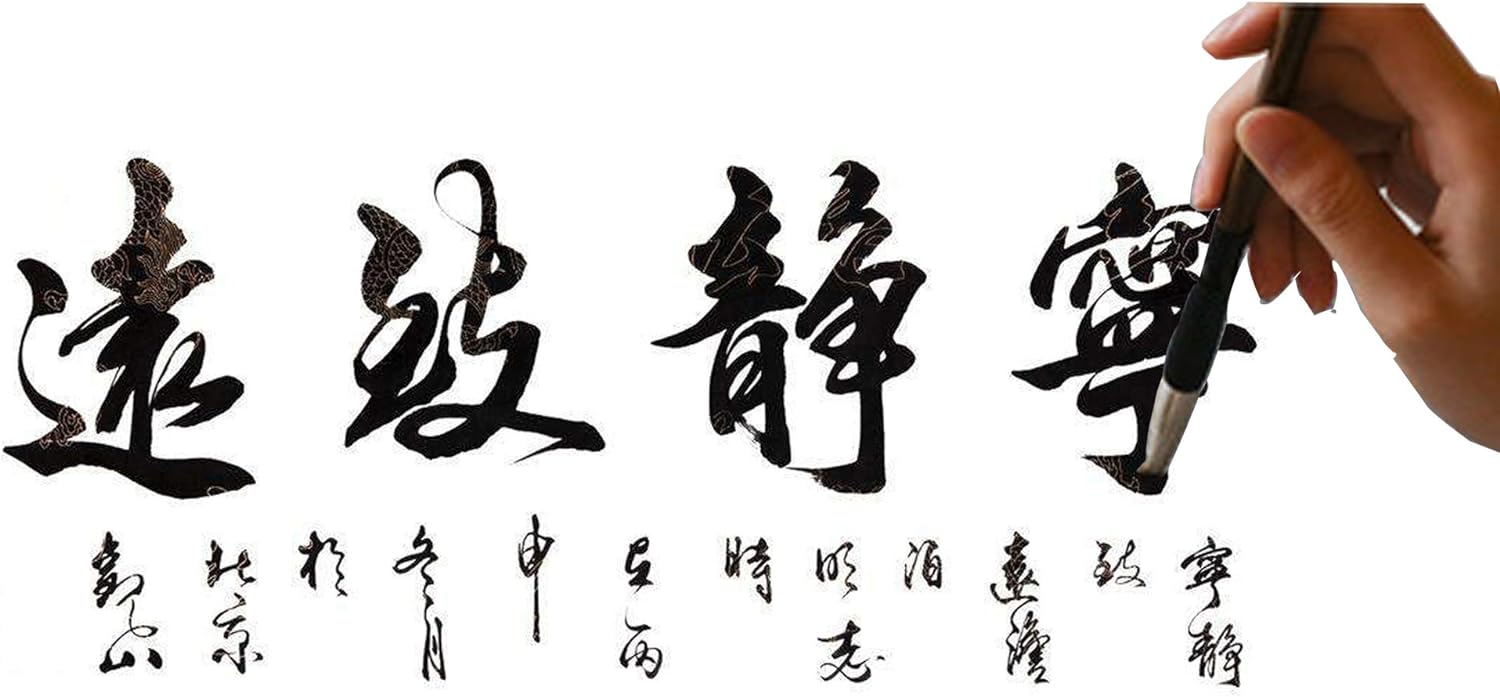 寧靜致遠
寧靜
致
遠澹
泊
明志
時
丙
申
冬月
於
北京
山